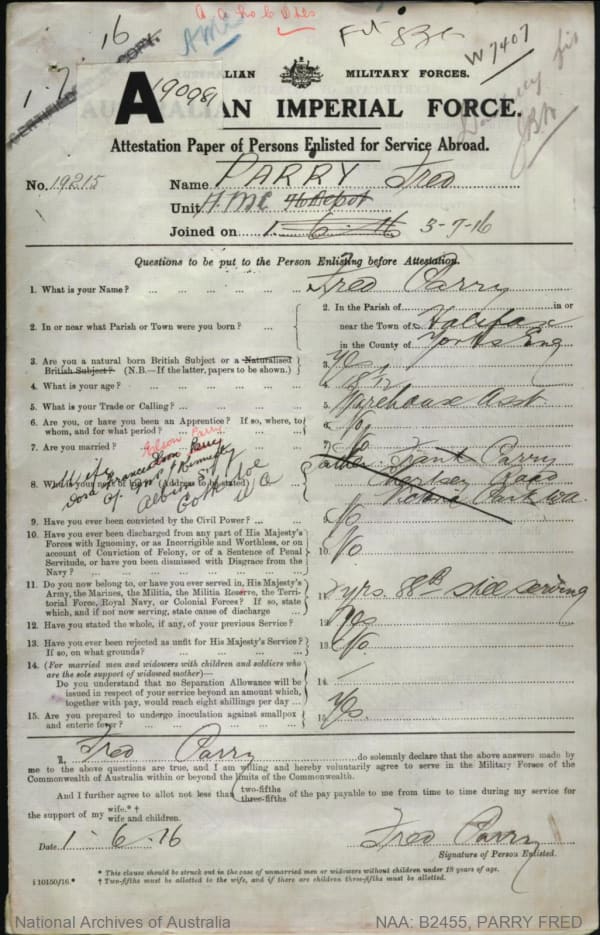 1.7.16
A M C
Fit
W7407
CERTIFIED COPY.
A
190981
LIAN MILITARY FORCES.
AN IMPERIAL FORCE.
Attestation Paper of Persons Enlisted for Service Abroad.
No. 19215 Name PARRY Fred
Unit A.M.C. Depot
Joined on 1-6-16 3-7-16
Questions to be put to the Person Enlisting before Attestation.
1. What is your Name? ... ... ... ... Fred Parry
2. In or near what Parish or Town were you born? ...
2. In the Parish of in or
near the Town of Halifax
in the County of Yorks Eng
3. Are you a natural born British Subject or a Naturalised
British Subject? (N.B.—If the latter, papers to be shown.)
3. Yes
4. What is your age? ... ... ... ... 4.
5. What is your Trade or Calling? ... ... ... 5. Warehouse Asst
6. Are you, or have you been an Apprentice? If so, where, to
whom, and for what period? ... ... ...
6. No
7. Are you married? ... ... ... 7. No
8. What is your next of kin? (Address to be stated)
Father Frank Parry
Chertsey Road
Victoria Park WA.
Wife
Parry
Albion St
Cottesloe
WA
9. Have you ever been convicted by the Civil Power? ... ... 9. No
10. Have you ever been discharged from any part of His Majesty's
Forces with Ignominy, or as Incorrigible and Worthless, or on
account of Conviction of Felony, or of a Sentence of Penal
Servitude, or have you been dismissed with Disgrace from the
Navy? ... ... ... ... ...
10. No
11. Do you now belong to, or have you ever served in, His Majesty's
Army, the Marines, the Militia, the Militia Reserve, the Terri-
torial Force, Royal Navy, or Colonial Forces? If so, state
which, and if not now serving, state cause of discharge ...
11. yrs. 88th still serving
12. Have you stated the whole, if any, of your previous Service? 12. Yes
13. Have you ever been rejected as unfit for His Majesty's Service?
If so, on what grounds? ... ... ...
13. No.
14. (For married men and widowers with children and soldiers who
are the sole support of widowed mother)—
Do you understand that no Separation Allowance will be
issued in respect of your service beyond an amount which,
together with pay, would reach eight shillings per day ...
14. —
15. Are you prepared to undergo inoculation against smallpox
and enteric fever? ... ... ... ...
15. Yes.
I, Fred Parry do solemnly declare that the above answers made by
me to the above questions are true, and I am willing and hereby voluntarily agree to serve in the Military Forces of the
Commonwealth of Australia within or beyond the limits of the Commonwealth.
And I further agree to allot not less than two-fifths
three-fifths of the pay payable to me from time to time during my service for
the support of my wife.* †
wife and children.
Date 1-6-16 Fred Parry
Signature of Person Enlisted.
* This clause should be struck out in the case of unmarried men or widowers without children under 18 years of age.
† Two-fifths must be allotted to the wife, and if there are children three-fifths must be allotted.
‡ 10150/16.*
National Archives of Australia NAA: B2455, PARRY FRED